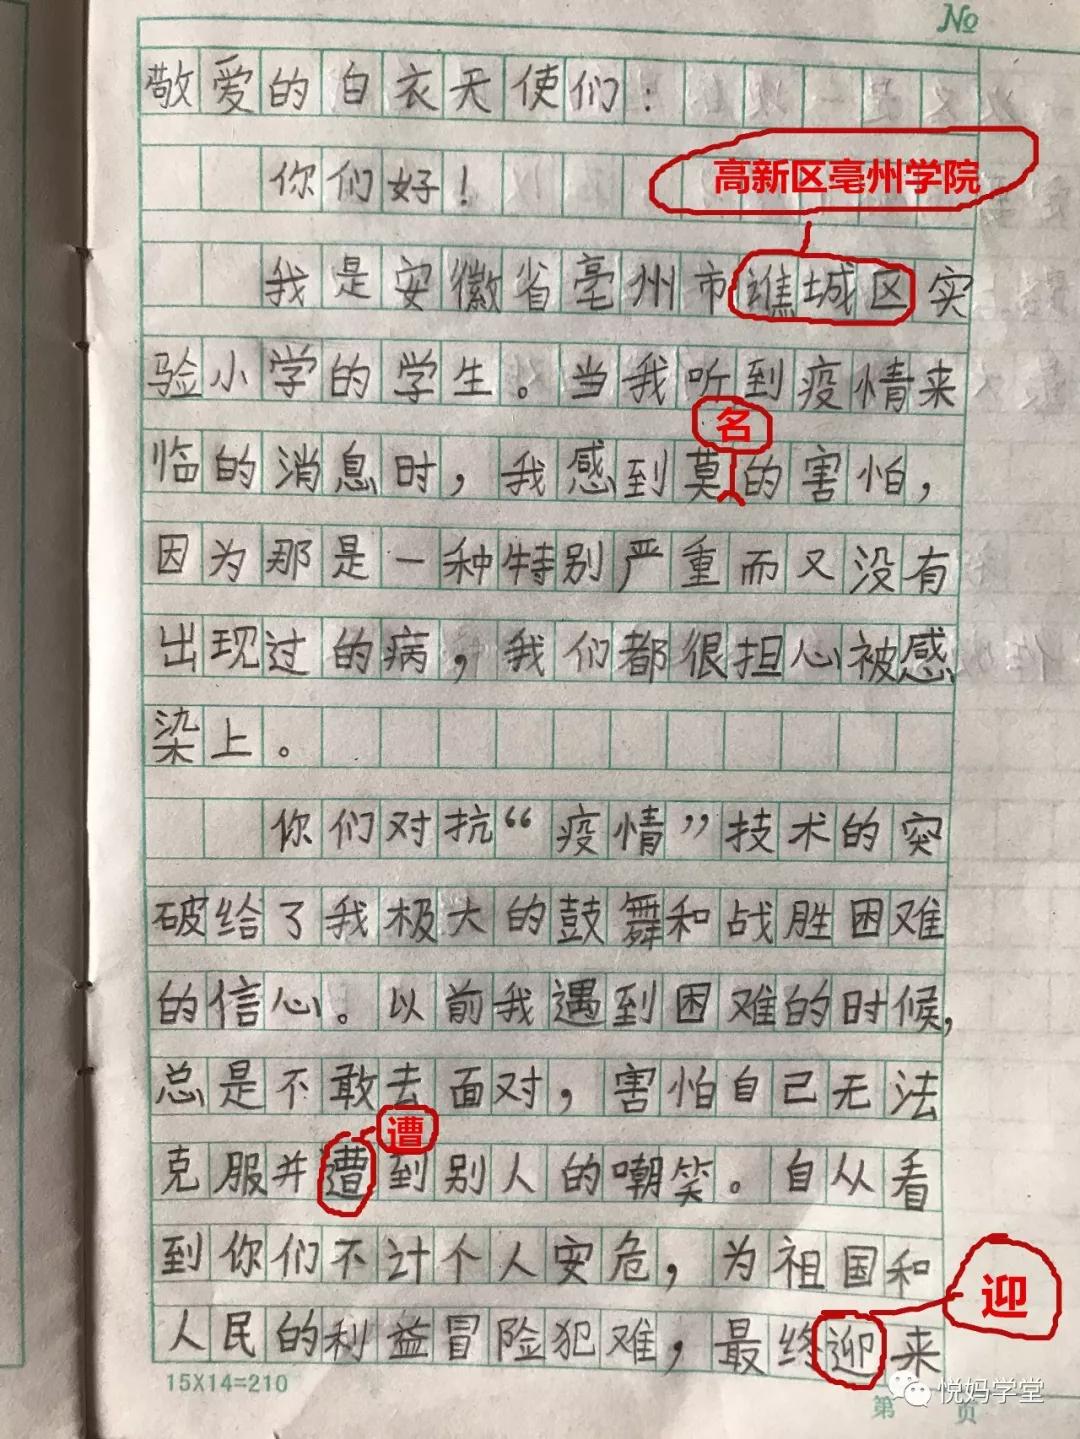 №
敬爱的白衣天使们：
你们好！
高新区亳州学院
我是安徽省亳州市谯城区实
验小学的学生。当我听到疫情来
名
临的消息时，我感到莫的害怕，
因为那是一种特别严重而又没有
出现过的病，我们都很担心被感
染上。
你们对抗“疫情”技术的突
破给了我极大的鼓舞和战胜困难
的信心。以前我遇到困难的时候，
总是不敢去面对，害怕自己无法
遭
克服并遭到别人的嘲笑。自从看
到你们不计个人安危，为祖国和
迎
人民的利益冒险犯难，最终迎来
15X14=210
悦妈学堂
第 页